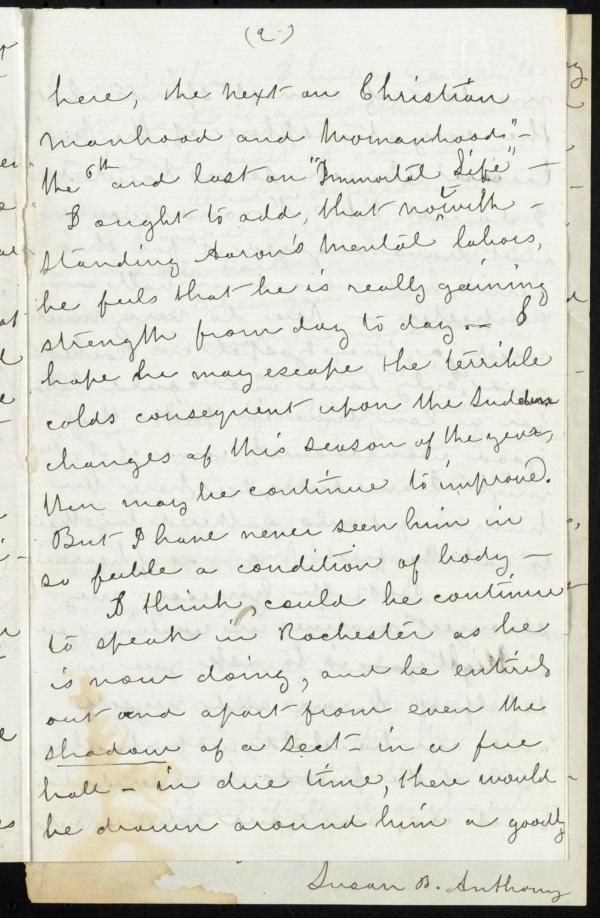 (2.)
here, the next on Christian
manhood and Womanhood" -
the 6th and last on "Immortal Life" -
I ought to add, that notwith -
standing Aaron's mental labors,
he feels that he is really gaining
strength from day to day -- I
hope he may escape the terrible
colds consequent upon the sudden
changes of this season of the year,
then may he continue to improve.
But I have never seen him in
so feeble a condition of body -
I think, could he continue
to speak in Rochester as he
is now doing, and be entirely
out and apart from even the
shadow of a sect - in a free
hall - in due time, there would
be drawn around him a goodly
Susan B. Anthony